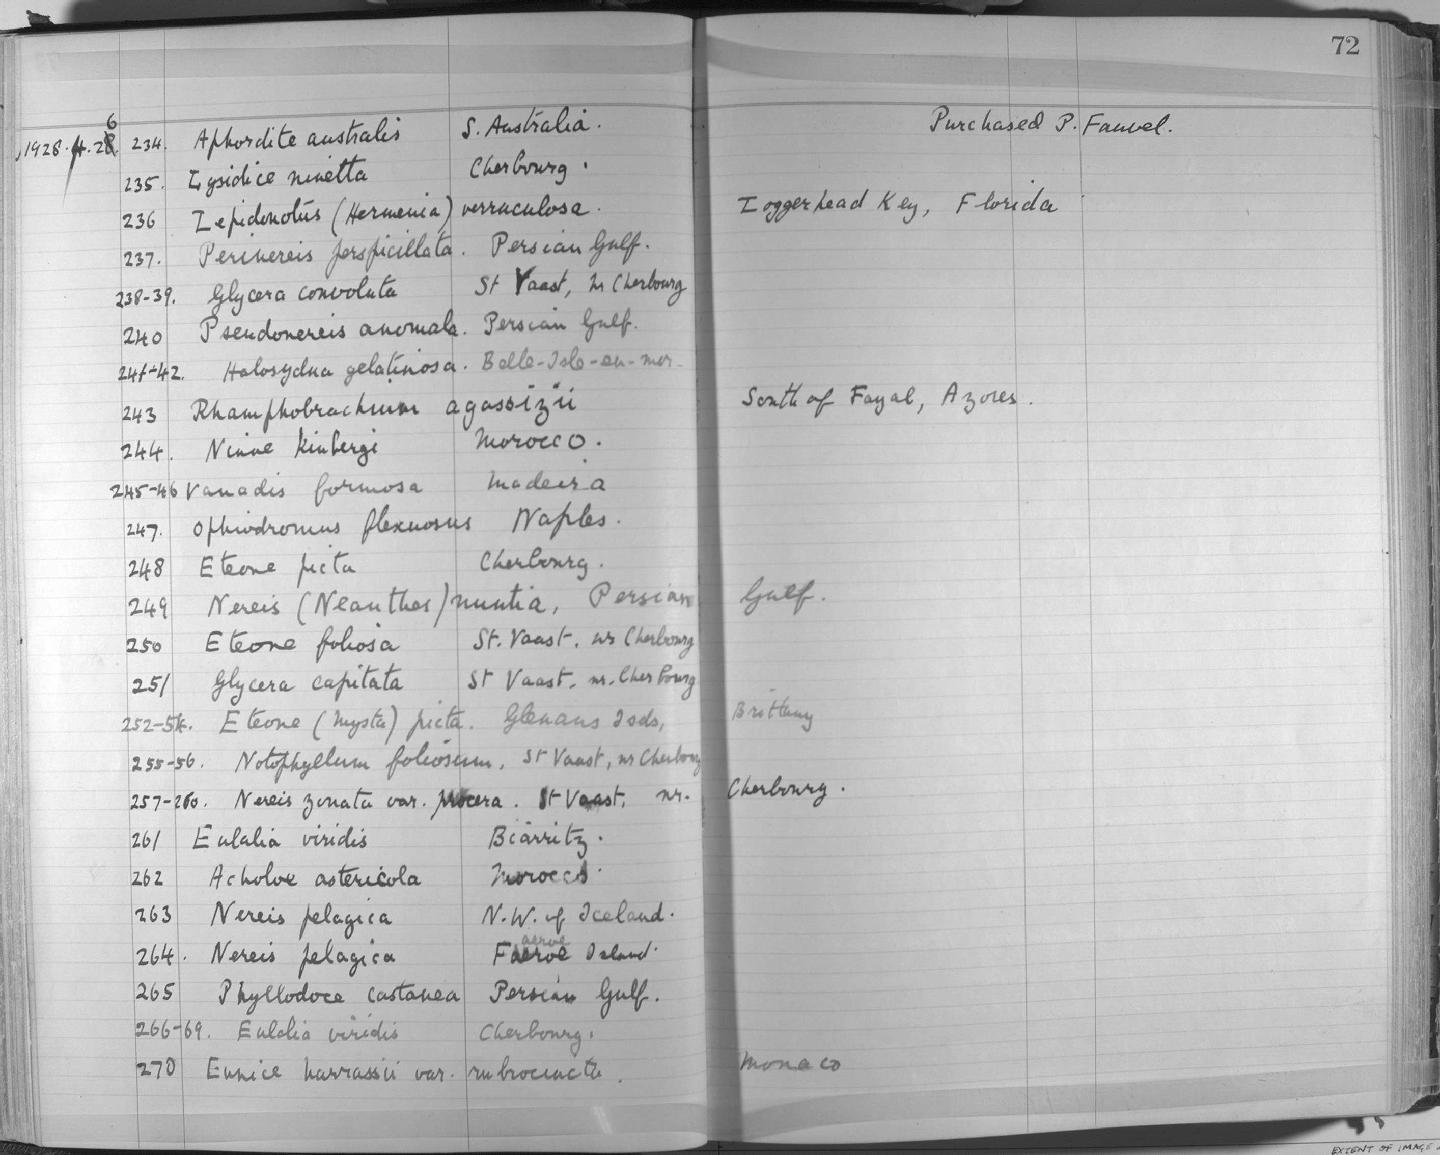 72
1928.4.26. 234. Aphordite australis S. Australia. Purchased P. Fauvel.
235. Lysidice ninetta Cherbourg.
236 Lepidonotus (Hermenia) verruculosa. Loggerhead Key, Florida
237. Perinereis perspicillata. Persian Gulf.
238-39. Glycera convoluta St Vaast, nr Cherbourg
240 Pseudonereis anomala. Persian Gulf.
241-42. Halosydna gelatinosa. Belle-Isle-en-mer.
243 Rhamphobrachium agassizii South of Fayal, Azores.
244. Ninoe kinbergi Morocco.
245-46 Vanadis formosa Madeira
247. Ophiodromus flexuosus Naples.
248 Eteone picta Cherbourg.
249 Nereis (Neanthes) nuntia, Persian Gulf.
250 Eteone foliosa St. Vaast. nr Cherbourg
251 Glycera capitata St Vaast. nr. Cherbourg
252-54. Eteone (Mysta) picta. Glenans Isds, Brittany
255-56. Notophyllum foliosum, St Vaast, nr Cherbourg
257-260. Nereis zonata var. procera. St Vaast, nr. Cherbourg.
261 Eulalia viridis Biarritz.
262 Acholoe astericola Morocco.
263 Nereis pelagica N.W. of Iceland.
264. Nereis pelagica Faeroe Island.
265 Phyllodoce castanea Persian Gulf.
266-69. Eulalia viridis Cherbourg.
270 Eunice harrassii var. rubrocincta. Monaco
EXTENT OF IMAGE